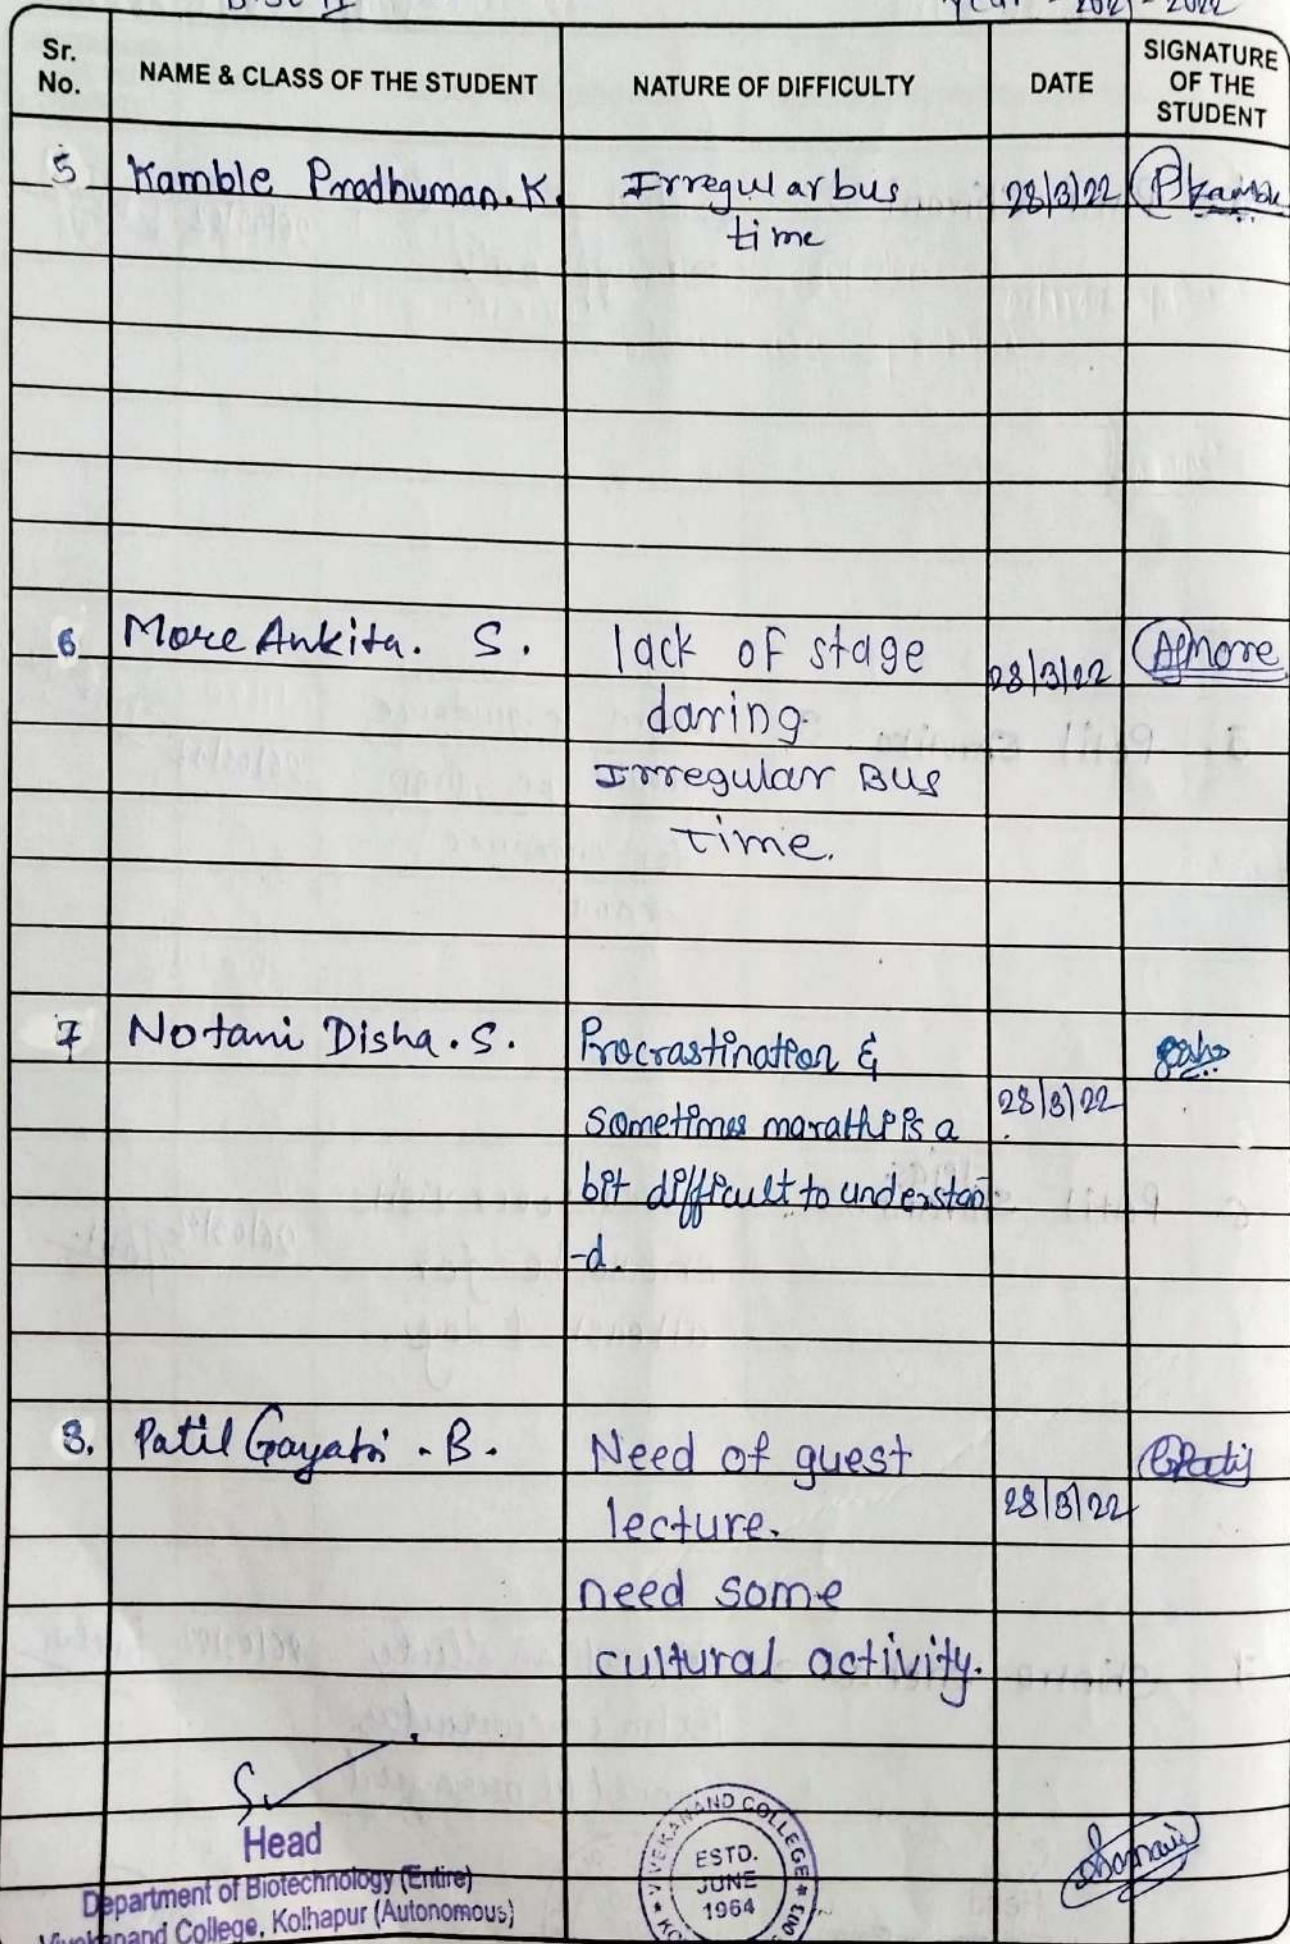 B.Sc II Year - 2021 - 2022
Sr. No. NAME & CLASS OF THE STUDENT NATURE OF DIFFICULTY DATE SIGNATURE OF THE STUDENT
5 Kamble Pradhuman. K. Irregular bus 28/3/22 PKamble
time
6 More Ankita. S. lack of stage 28/3/22 AMore
daring.
Irregular Bus
Time.
7 Notani Disha. S. Procrastination &
sometimes marathi is a 28/3/22
bit difficult to understan
-d.
8. Patil Gayatri . B. Need of guest GPatil
lecture. 28/3/22
need some
cultural activity.
Head
Department of Biotechnology (Entire)
Vivekanand College, Kolhapur (Autonomous)
VIVEKANAND COLLEGE
ESTD.
JUNE
1964